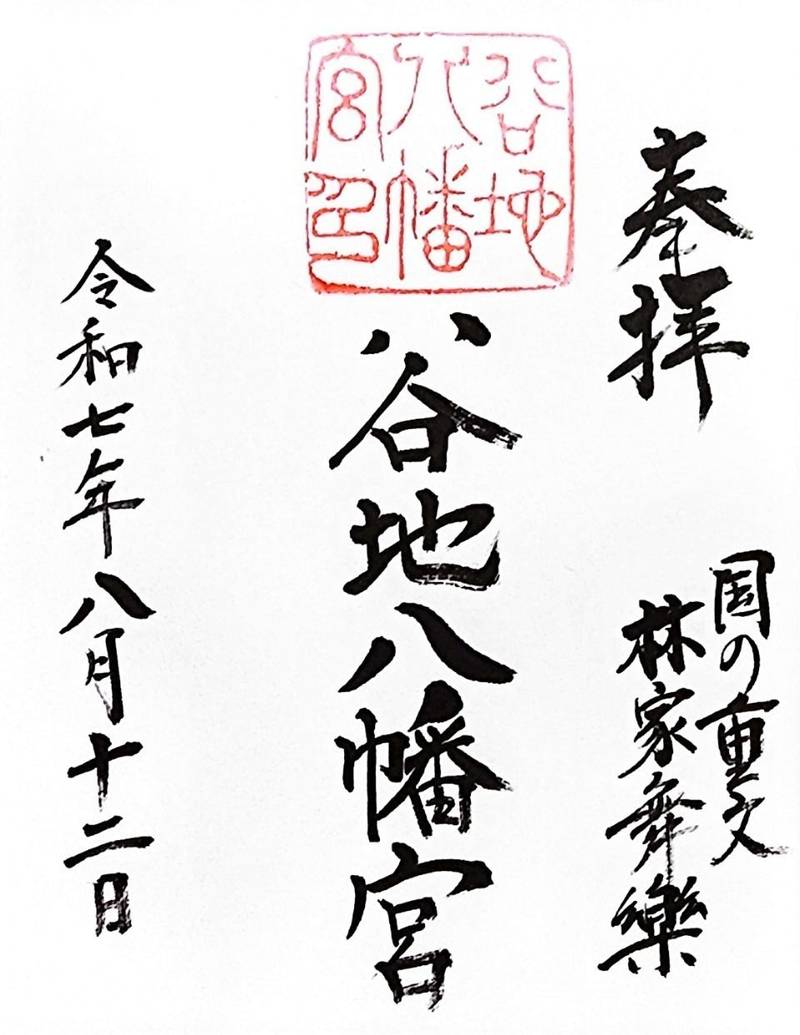 奉拝
国の重文
林家舞樂
谷地八幡宮印
谷地八幡宮
令和七年八月十二日